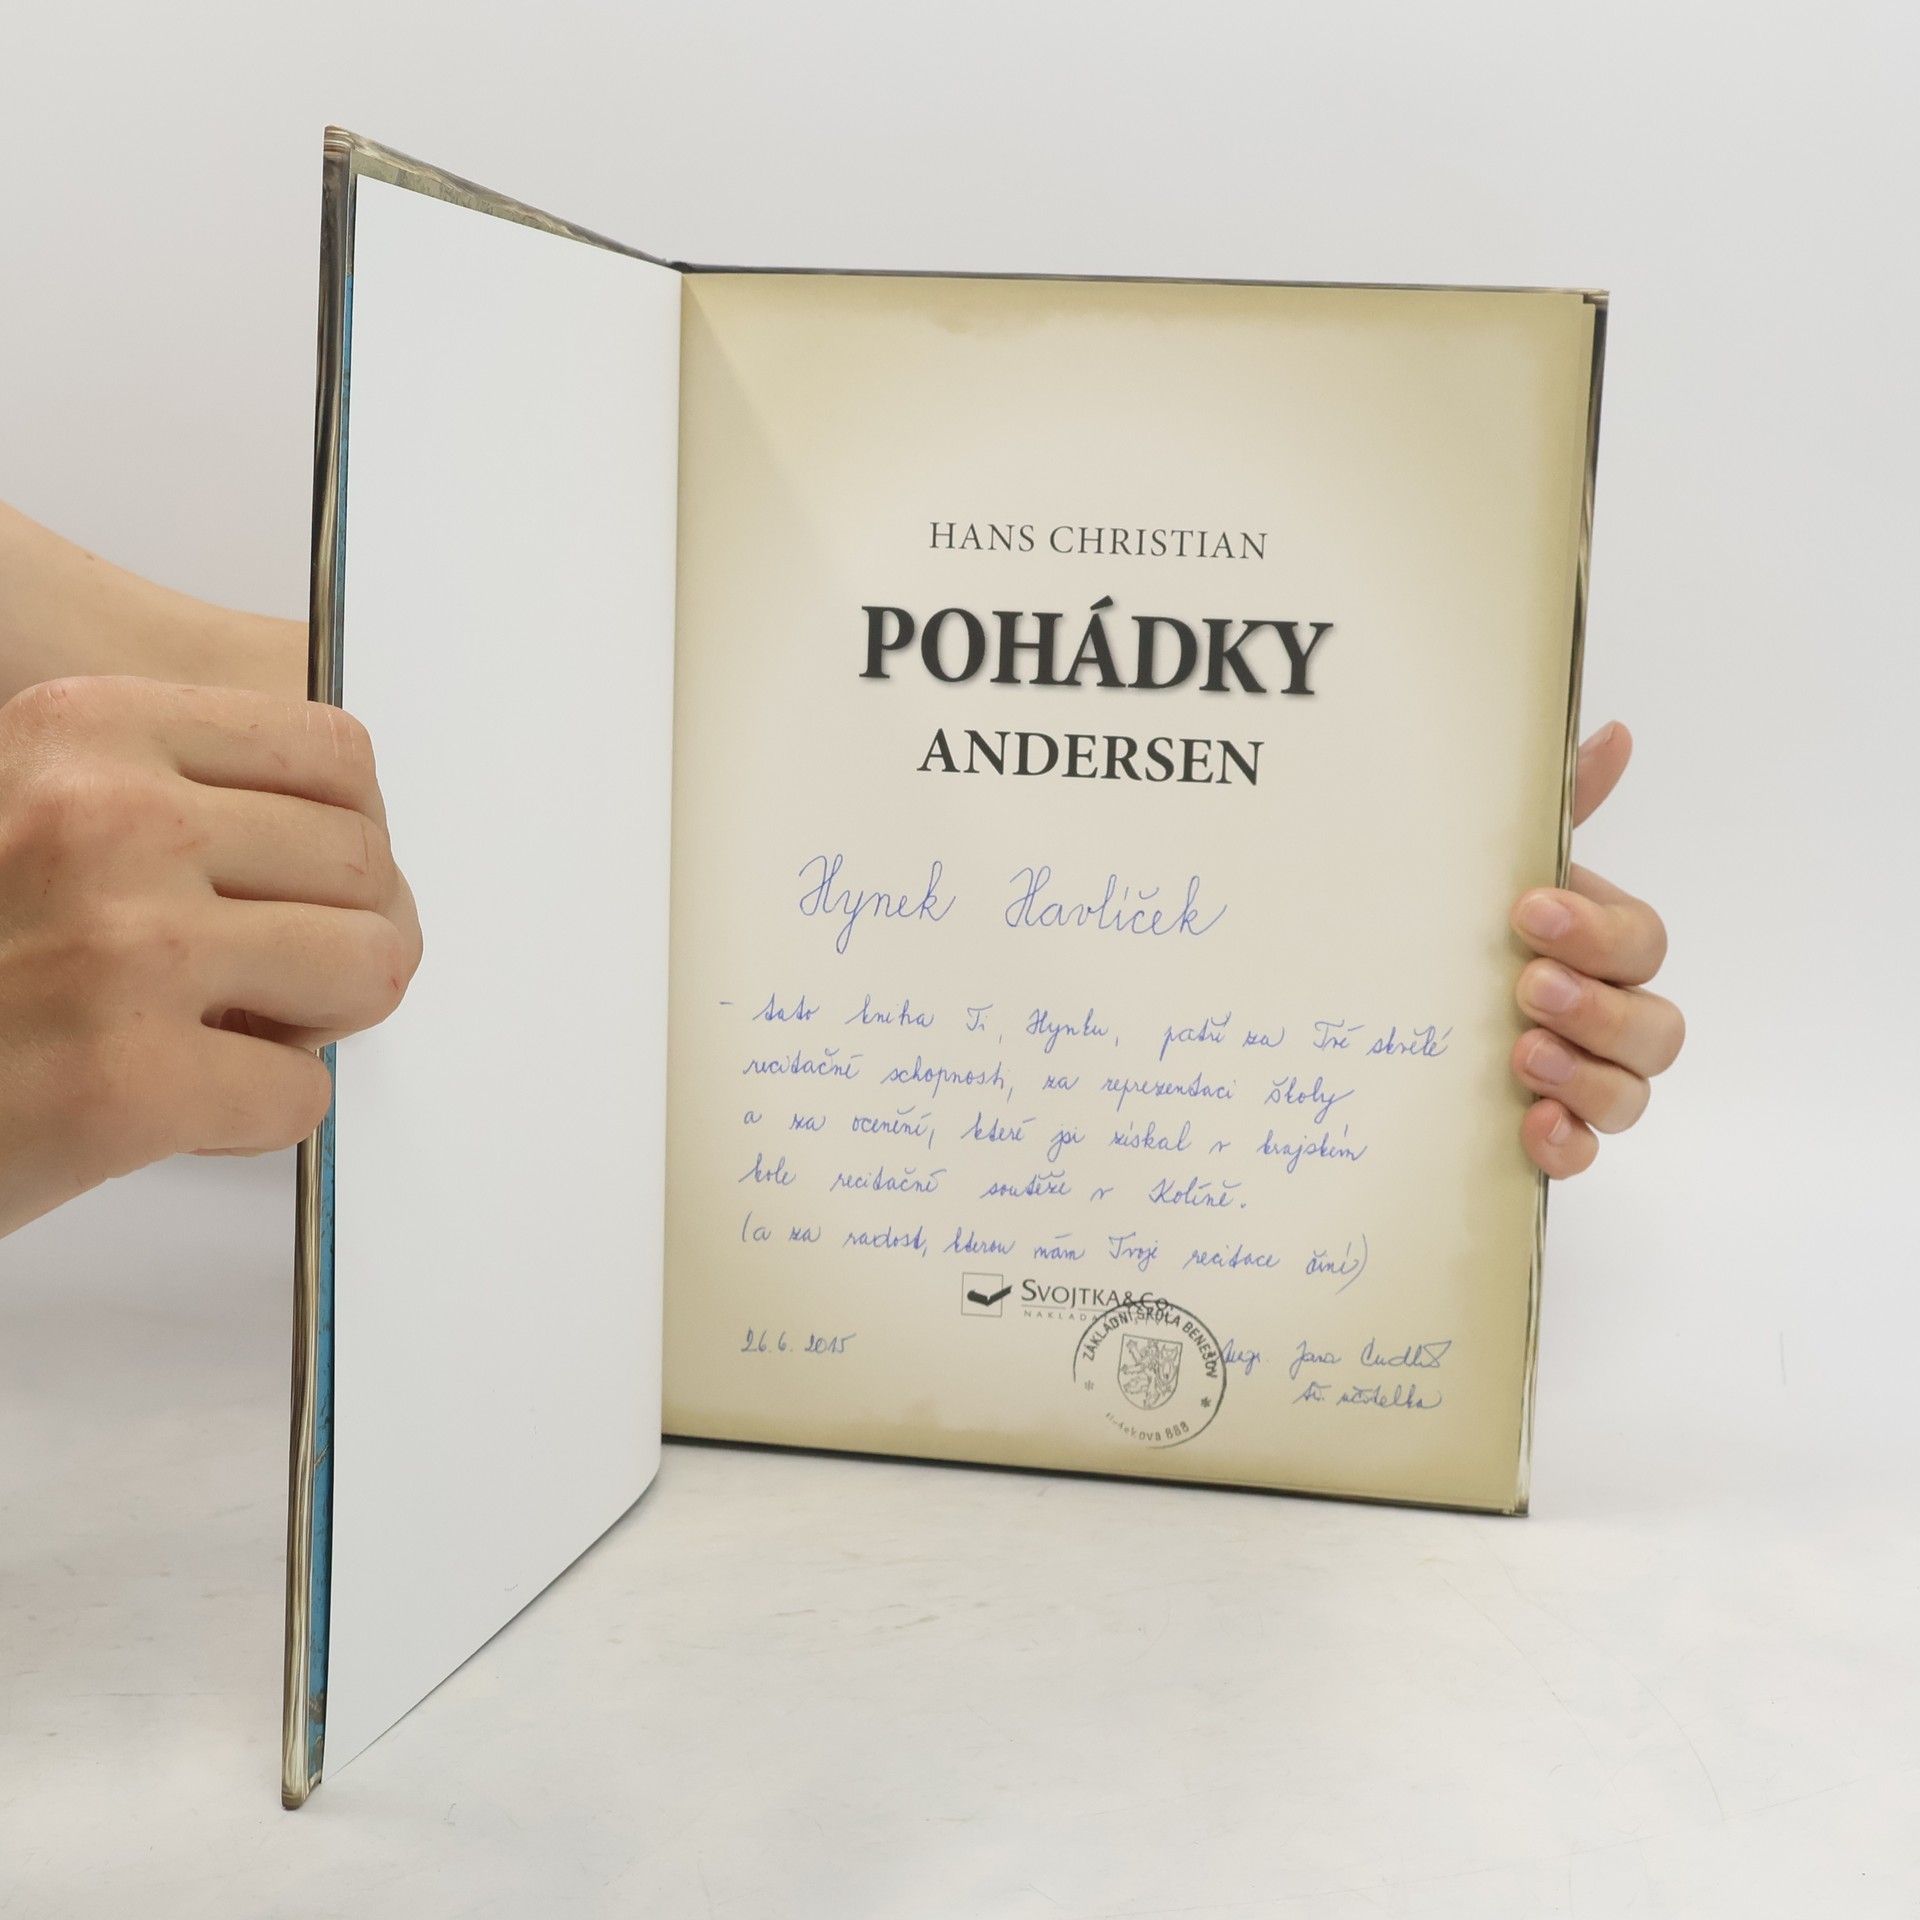 HANS CHRISTIAN
POHÁDKY
ANDERSEN
Hynek Havlíček
- tato kniha Ti, Hynku, patří za Tvé skvělé
recitační schopnosti, za reprezentaci školy
a za ocenění, které jsi získal v krajském
kole recitační soutěže v Kolíně.
(a za radost, kterou mám Tvoje recitace činí)
SVOJTKA&CO.
ZÁKLADNÍ ŠKOLA BENEŠOV
888
26. 6. 2015
Mgr. Jana
tř. učitelka